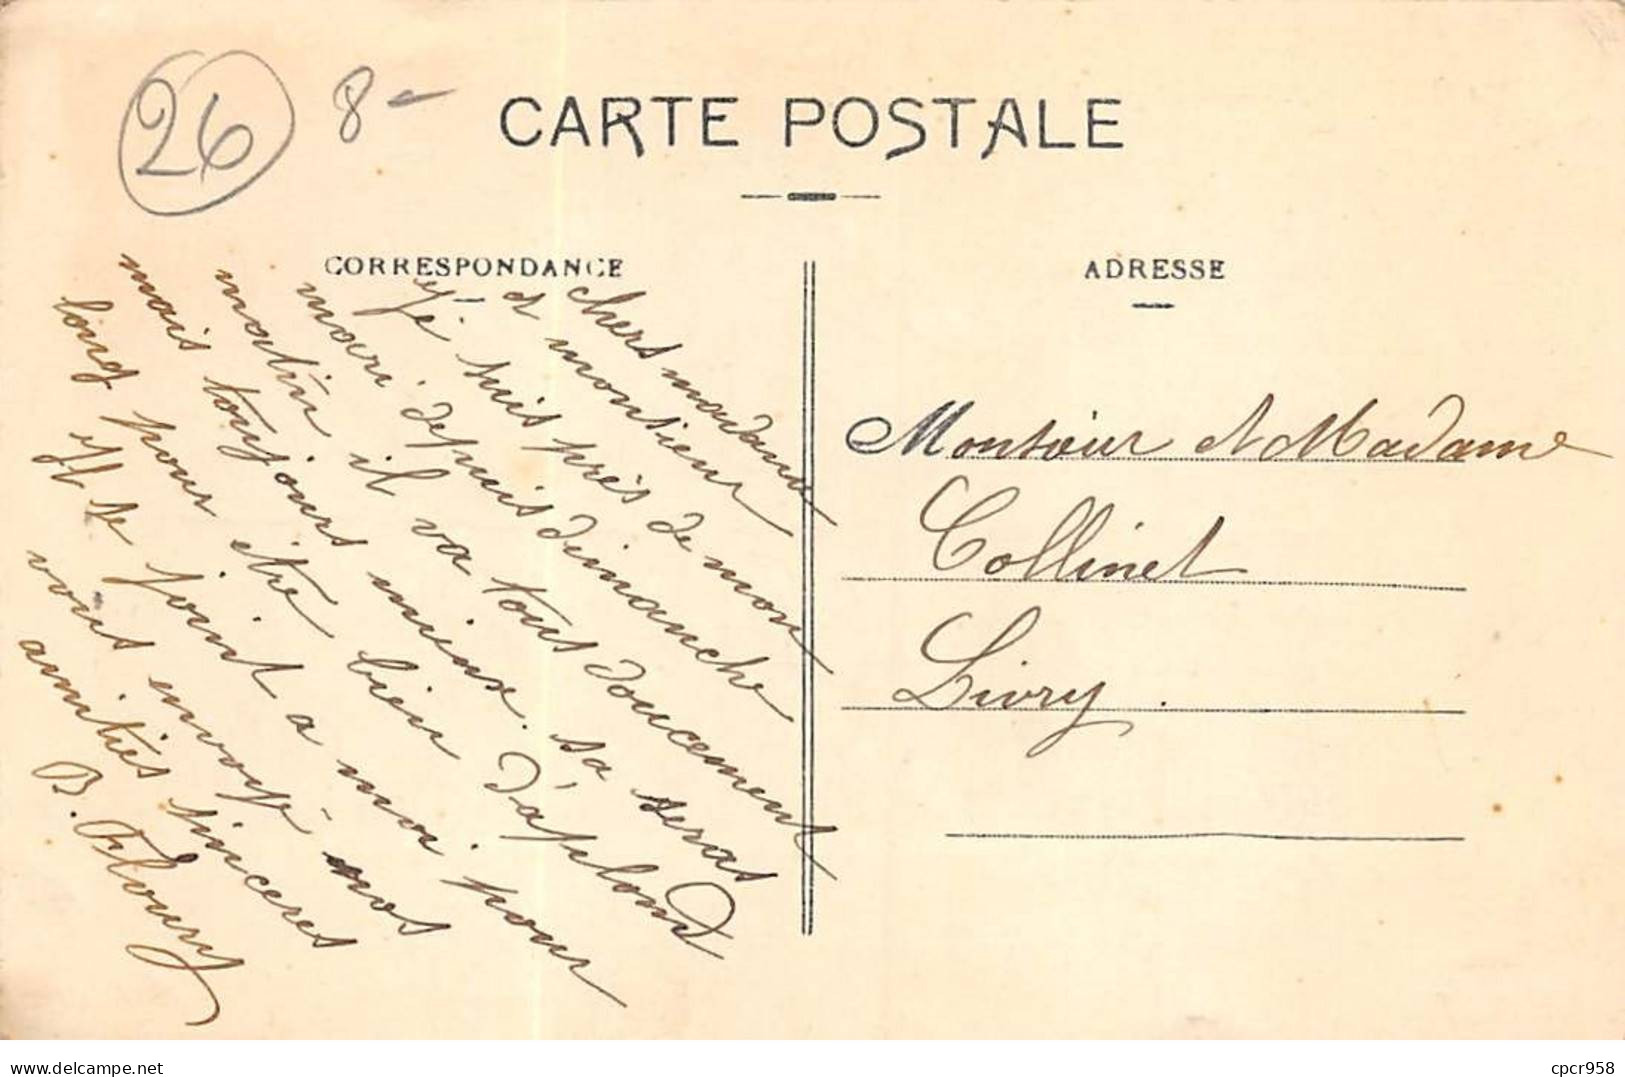 26 8-
CARTE POSTALE
CORRESPONDANCE
ADRESSE
chers madame
et monsieur
Je suis près de mon
mari depuis dimanche
matin il va tous doucement
mais toujours mieux. sa seras
long pour être bien d'aplond
Il se joint a moi pour
vous envoyé nos
amitiés sincères
B. Floury
Monsieur et Madame
Collinet
Livry.
delcampe.net
cpcr958